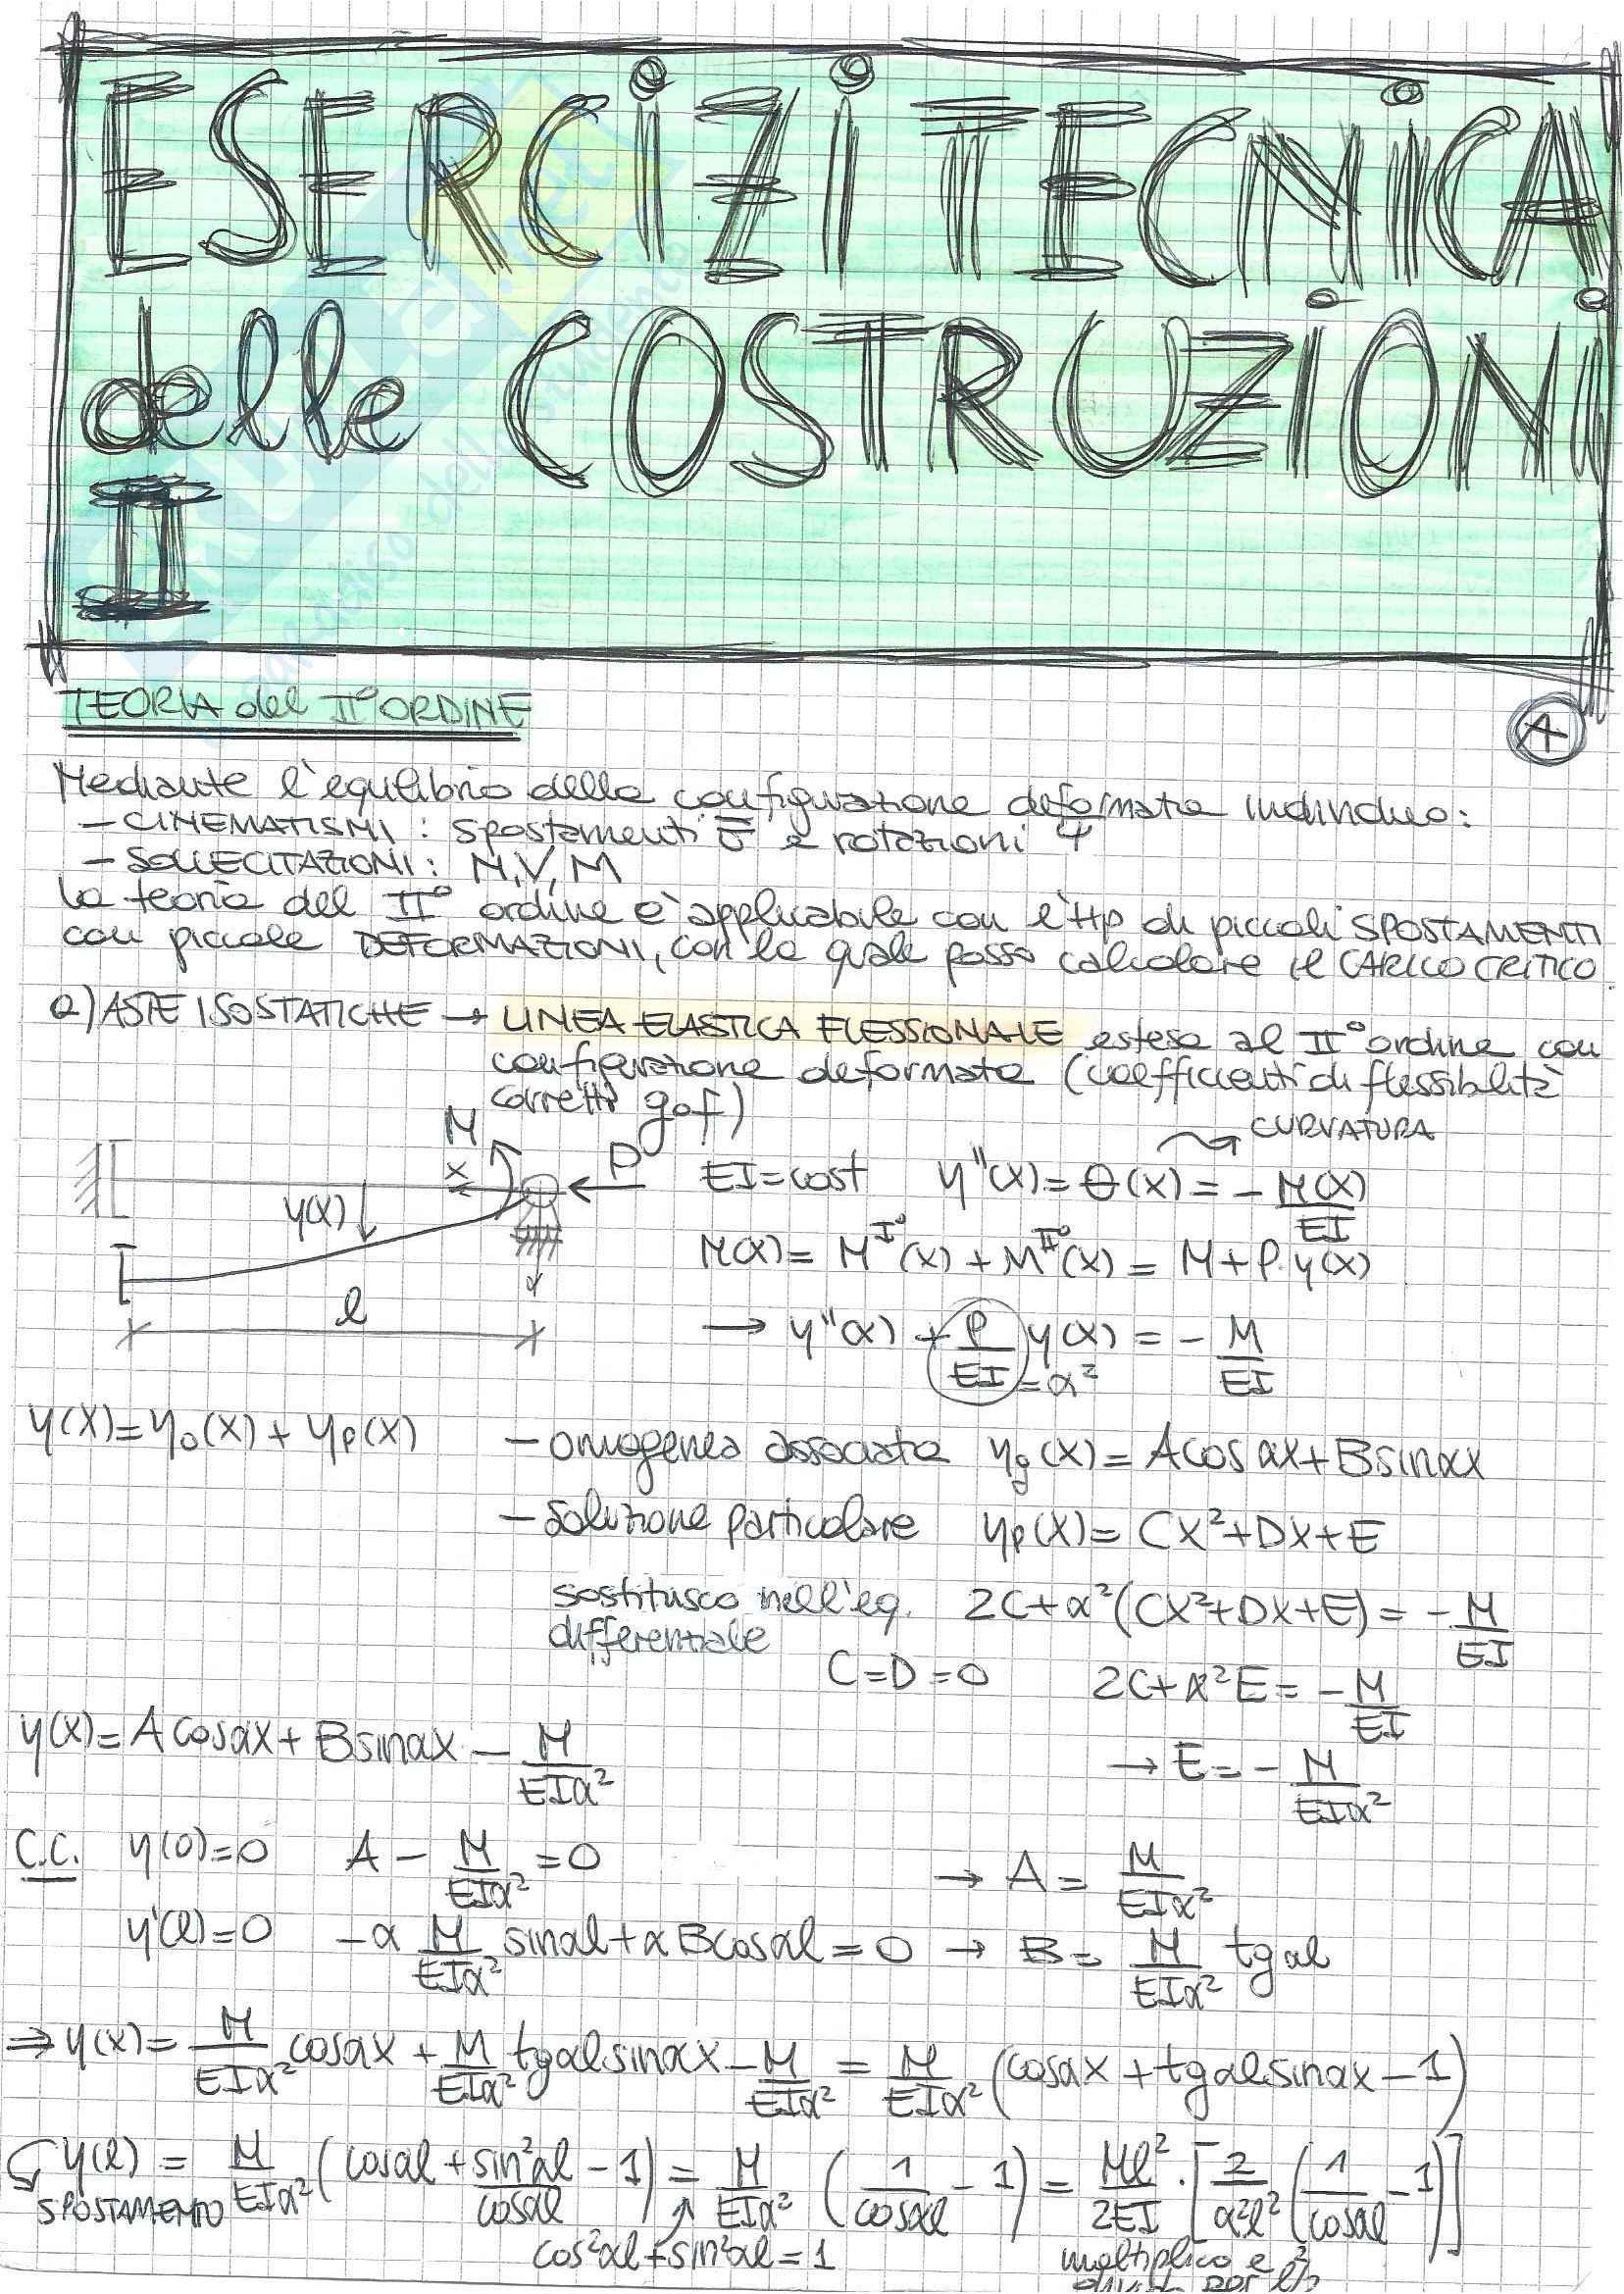 ESERCIZI TECNICA
delle COSTRUZIONI
II
TEORIA del II° ORDINE
A
Mediante l'equilibrio della configurazione deformata individuo:
- CINEMATISMI: spostamenti δ e rotazioni φ
- SOLLECITAZIONI: N, V, M
la teoria del II° ordine è applicabile con l'Hp di piccoli SPOSTAMENTI
con piccole DEFORMAZIONI, con la quale posso calcolare il CARICO CRITICO.
a) ASTE ISOSTATICHE → LINEA ELASTICA FLESSIONALE estesa al II° ordine con
configurazione deformata (coefficienti di flessibilità
corretti g o f)
CURVATURA
M
x
P
y(x)
l
EI = cost y''(x) = θ(x) = - M(x)/EI
M(x) = M^I°(x) + M^II°(x) = M + P·y(x)
→ y''(x) + P/EI y(x) = - M/EI
= α²
y(x) = y₀(x) + yp(x) - omogenea associata yg(x) = A cos αx + B sin αx
- soluzione particolare yp(x) = Cx² + Dx + E
sostituisco nell'eq. 2C + α²(Cx² + Dx + E) = - M/EI
differenziale
C = D = 0 2C + α²E = - M/EI
y(x) = A cos αx + B sin αx - M/EIα² → E = - M/EIα²
C.C. y(0) = 0 A - M/EIα² = 0 → A = M/EIα²
y'(l) = 0 -α M/EIα² sin αl + α B cos αl = 0 → B = M/EIα² tg αl
⇒ y(x) = M/EIα² cos αx + M/EIα² tg αl sin αx - M/EIα² = M/EIα² (cos αx + tg αl sin αx - 1)
y(l) = M/EIα² (cos αl + sin²αl/cos αl - 1) = M/EIα² (1/cos αl - 1) = Ml²/2EI · [2/α²l² (1/cos αl - 1)]
SPOSTAMENTO
cos²αl + sin²αl = 1
moltiplico e
divido per l²/2